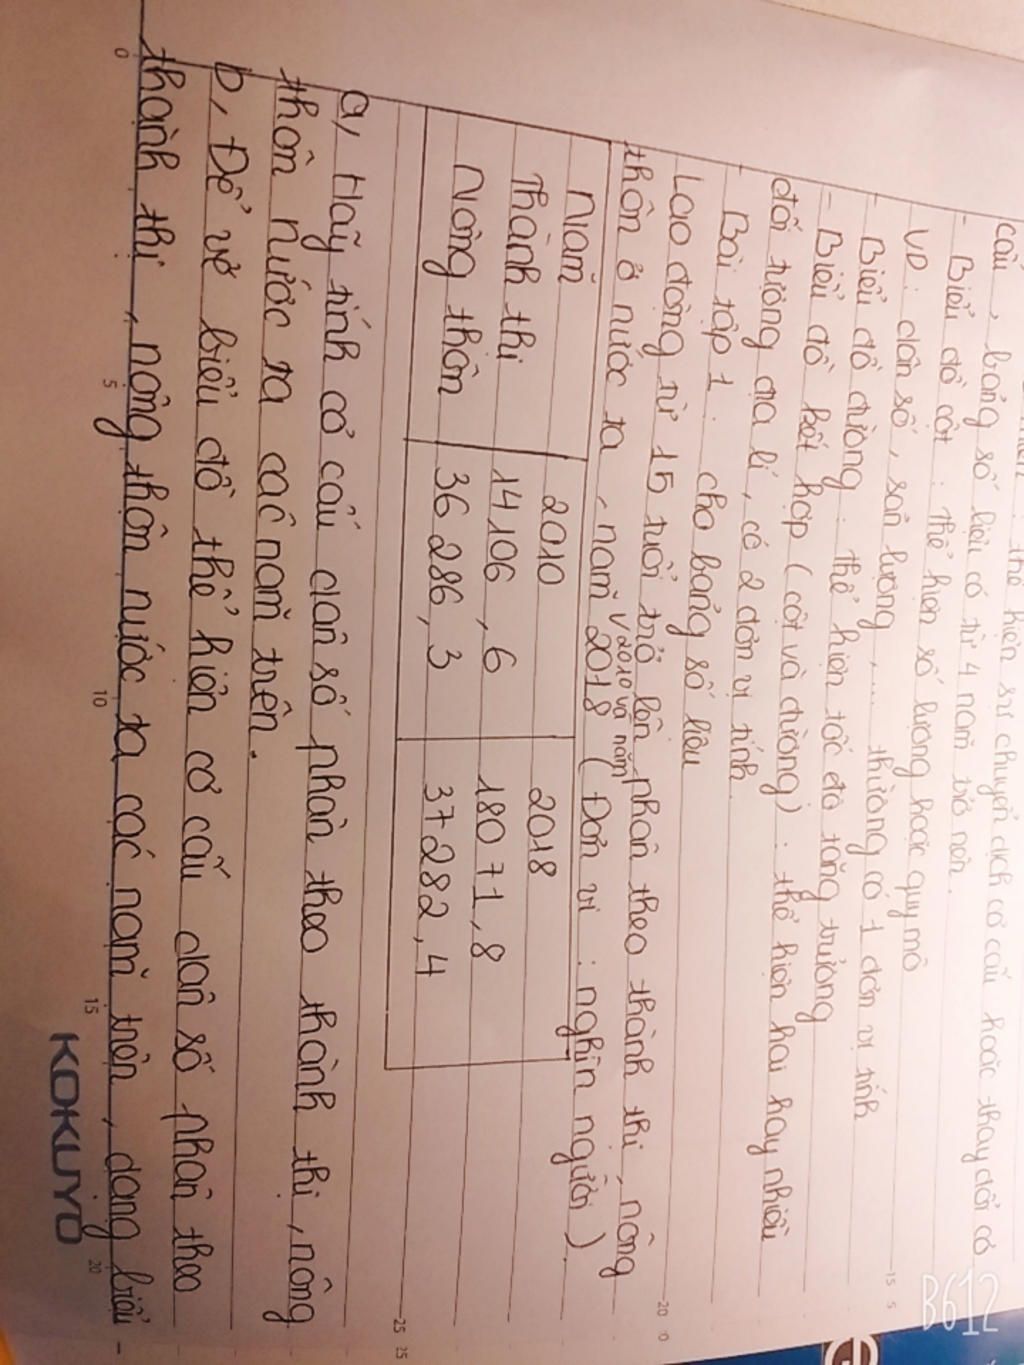 thể hiện sự chuyển dịch cơ cấu hoặc thay đổi cơ
cấu, bảng số liệu có từ 4 năm trở nên.
- Biểu đồ cột : Thể hiện số lượng hoặc quy mô
VD : dân số, sản lượng, .... thường có 1 đơn vị tính
- Biểu đồ đường : thể hiện tốc độ tăng trưởng
- Biểu đồ kết hợp (cột và đường) : thể hiện hai hay nhiều
đối tượng địa lí, có 2 đơn vị tính.
Bài tập 1 : cho bảng số liệu
Lao động từ 15 tuổi trở lên phân theo thành thị, nông
thôn ở nước ta, năm 2010 và năm 2018 (Đơn vị : nghìn người).
Năm 2010 2018
Thành thị 14106,6 18071,8
Nông thôn 36286,3 37282,4
a, Hãy tính cơ cấu dân số phân theo thành thị, nông
thôn nước ta các năm trên.
b, Để vẽ biểu đồ thể hiện cơ cấu dân số phân theo
thành thị, nông thôn nước ta các năm trên, dạng biểu -
0 5 10 15 20
KOKUYO
15 5
20 0
25 25
B612